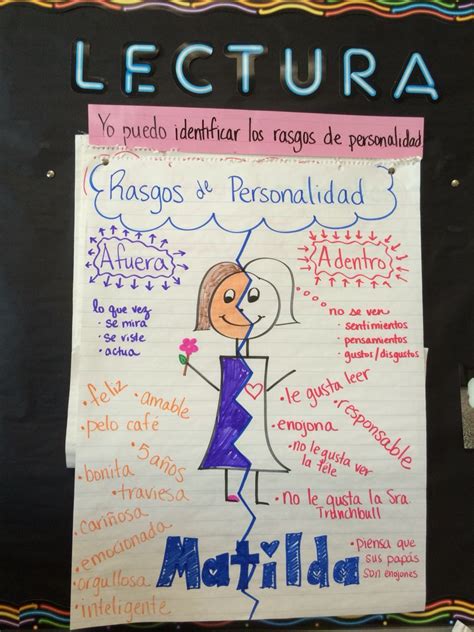 LECTURA
Yo puedo identificar los rasgos de personalidad
Rasgos de Personalidad
Afuera
lo que vez
· se mira
· se viste
· actua
Adentro
no se ven
· sentimientos
· pensamientos
· gustos/disgustos
· feliz
· amable
pelo café
· 5 años
· bonita
· traviesa
· cariñosa
· emocionada
· orgullosa
· inteligente
· le gusta leer
· responsable
· enojona
· no le gusta ver
la tele
· no le gusta la Sra
Trunchbull
· piensa que
sus papás
son enojones
Matilda